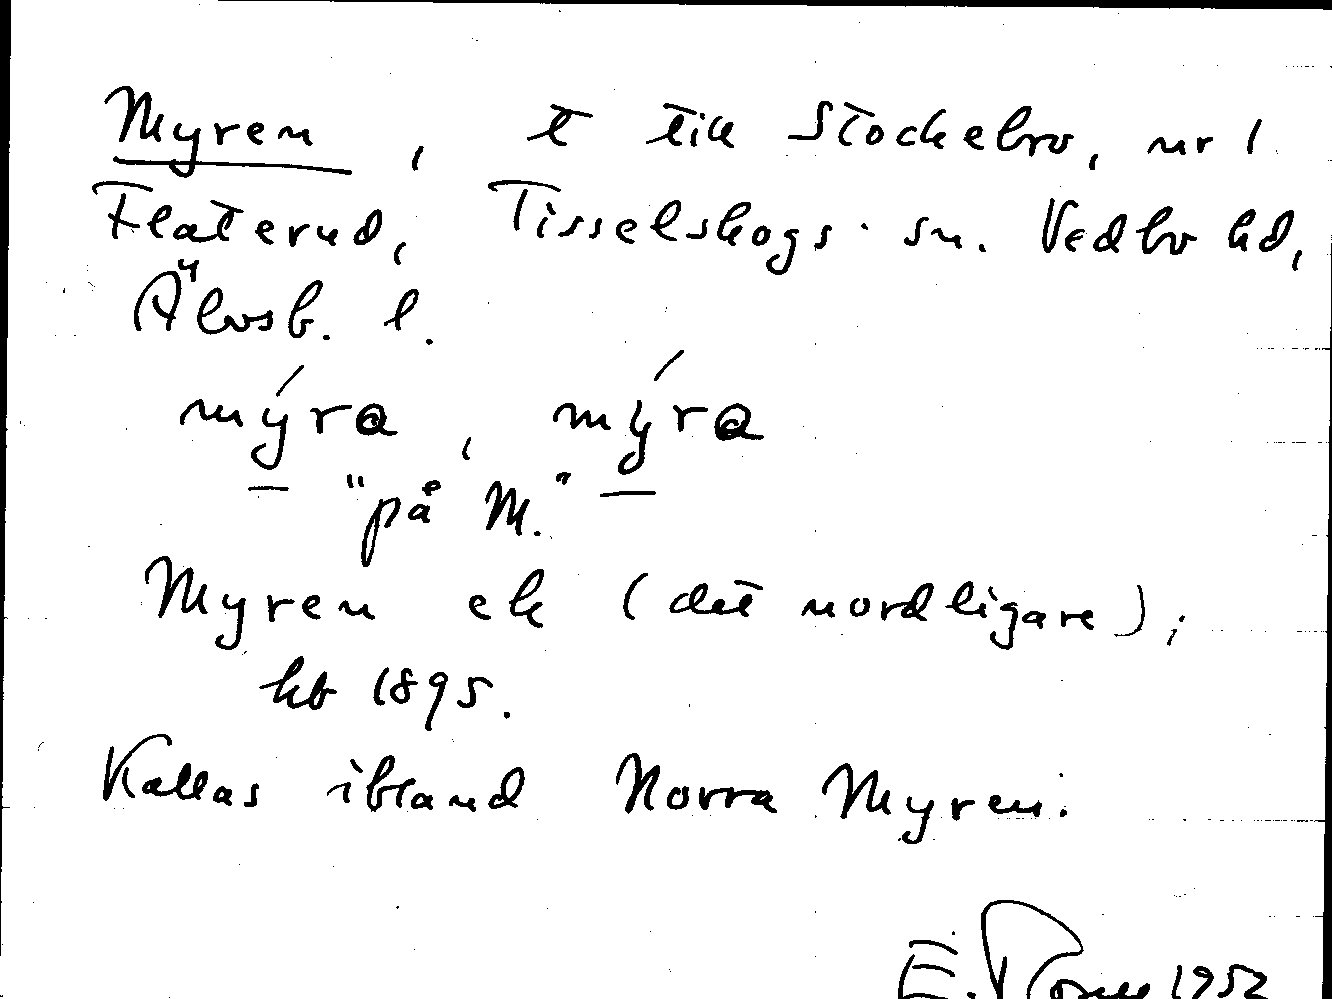 Myren, t till Stockebro, nr 1
Flaterud, Tisselskogs sn. Vedbo hd,
Älvsb. l.
mýra, mýra
"på M."
Myren ek (det nordligare);
kb 1895.
Kallas ibland Norra Myren.
E. 1952